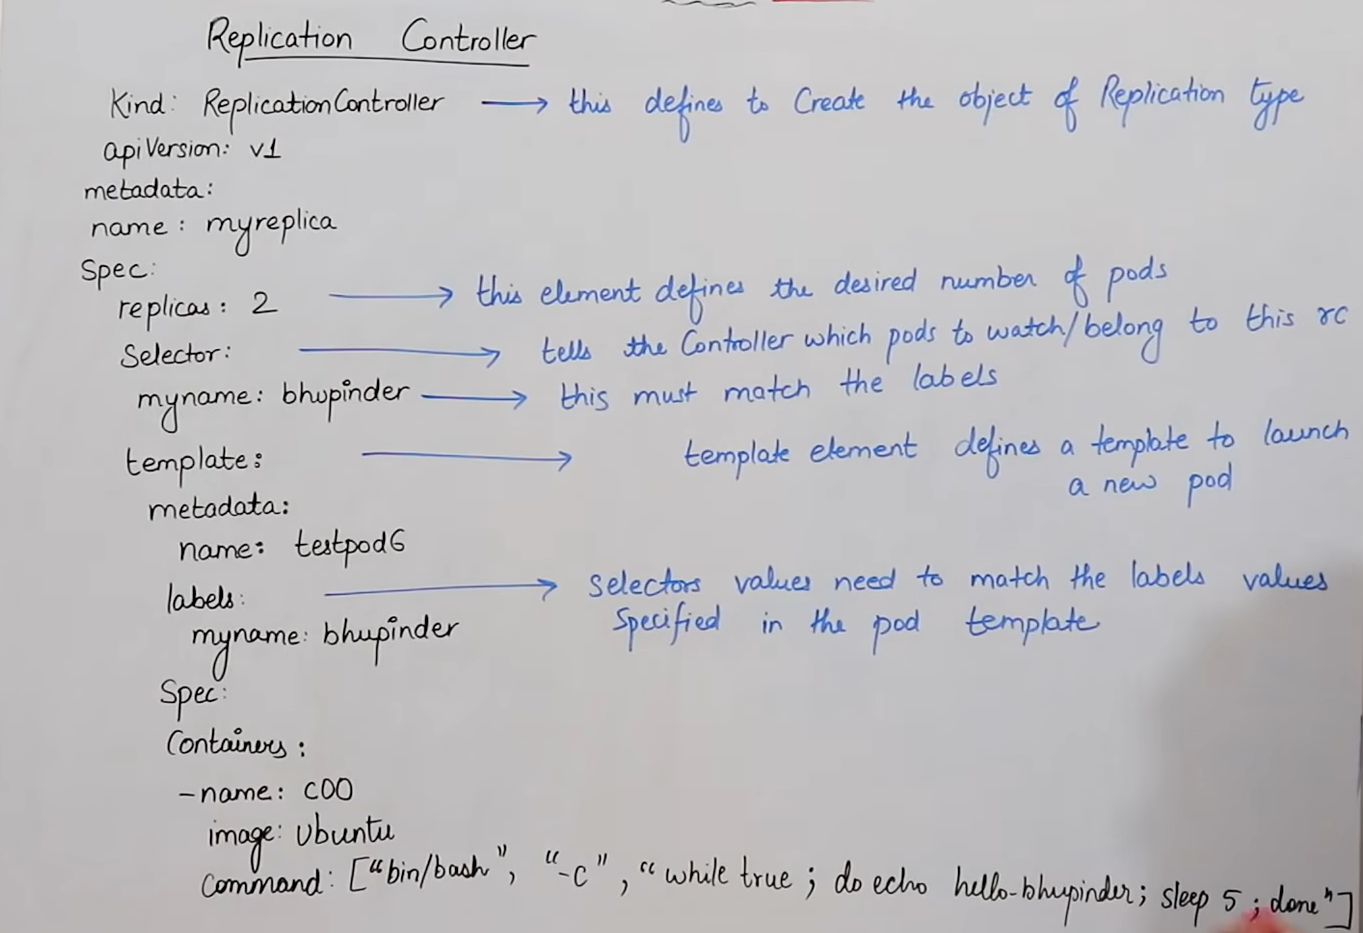 Replication Controller
Kind: ReplicationController → this defines to Create the object of Replication type
apiVersion: v1
metadata:
name: myreplica
Spec:
replicas: 2 → this element defines the desired number of pods
Selector: → tells the Controller which pods to watch/belong to this rc
myname: bhupinder → this must match the labels
template: → template element defines a template to launch
a new pod
metadata:
name: testpod6
labels: → Selectors values need to match the labels values
myname: bhupinder Specified in the pod template
Spec:
Containers:
-name: c00
image: Ubuntu
Command: ["bin/bash", "-c", "while true; do echo hello-bhupinder; sleep 5; done"]